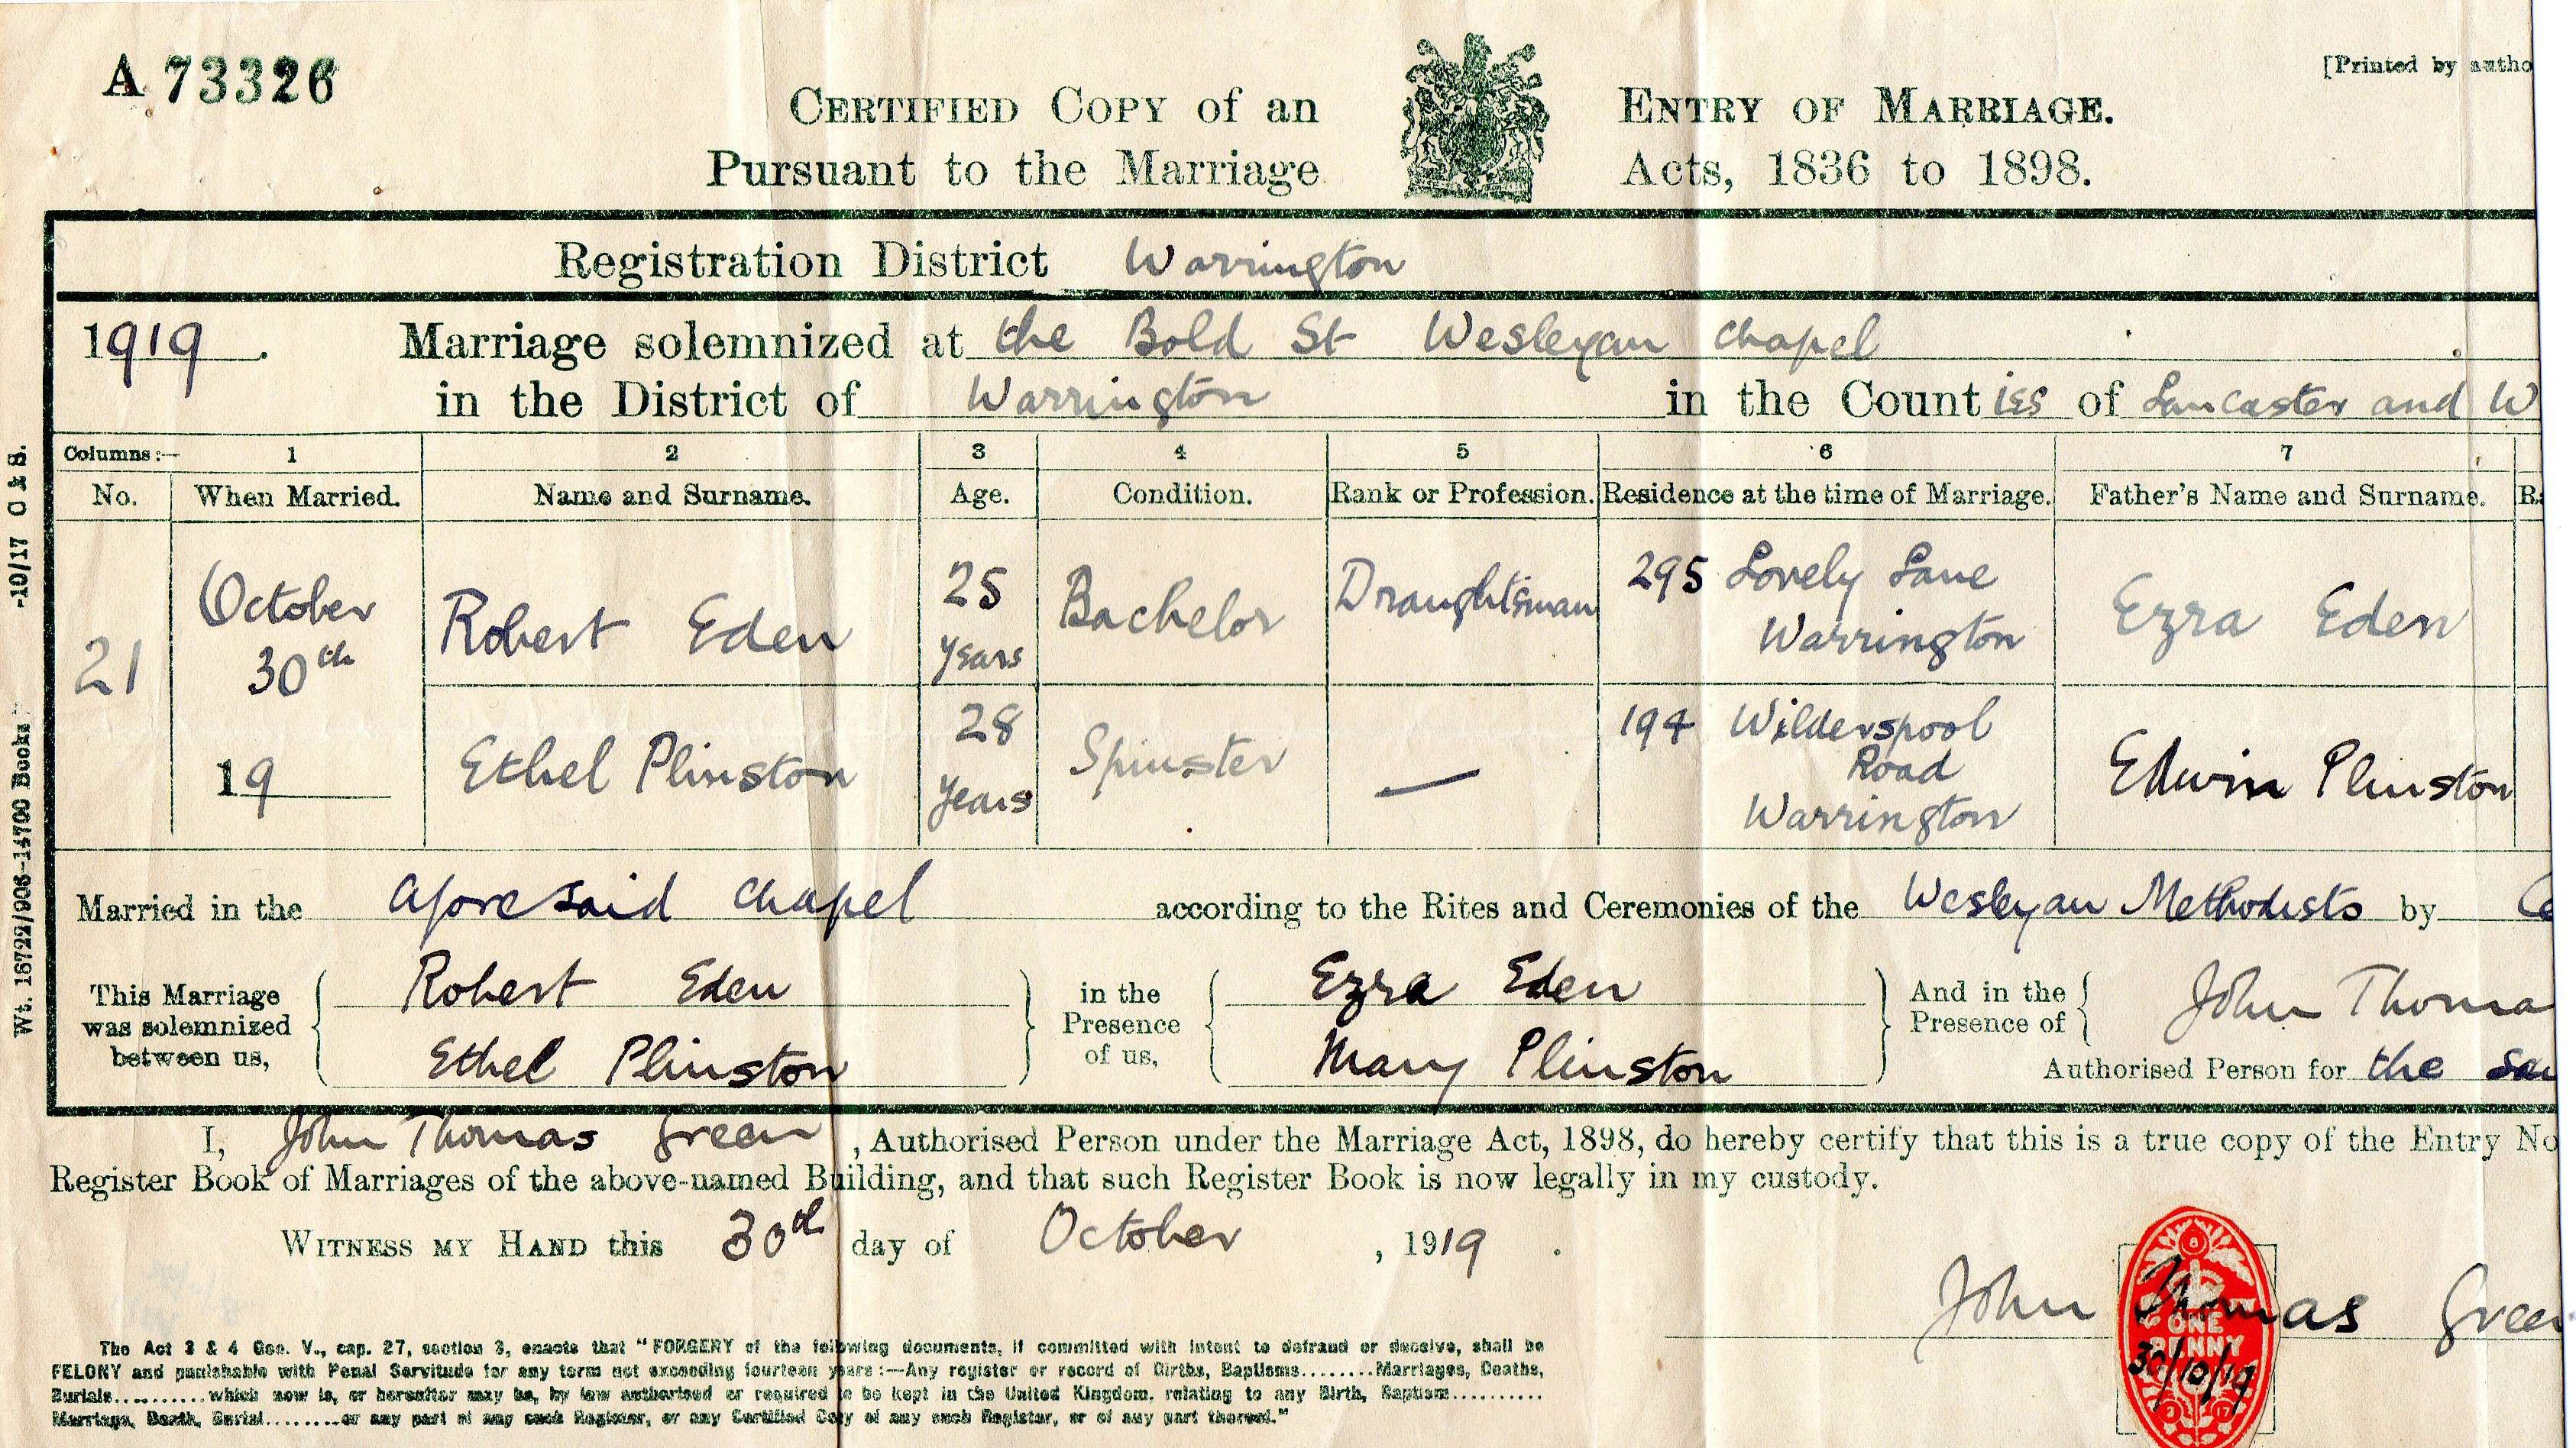 A 73326
[Printed by autho
CERTIFIED COPY of an ENTRY OF MARRIAGE.
Pursuant to the Marriage Acts, 1836 to 1898.
Registration District Warrington
1919. Marriage solemnized at the Bold St Wesleyan Chapel
in the District of Warrington in the Counties of Lancaster and W
Columns:— 1 2 3 4 5 6 7
No. When Married. Name and Surname. Age. Condition. Rank or Profession. Residence at the time of Marriage. Father's Name and Surname. Ra
21 October 30th 1919
Robert Eden 25 years Bachelor Draughtsman 295 Lovely Lane Warrington Ezra Eden
Ethel Plinston 28 years Spinster — 194 Wilderspool Road Warrington Edwin Plinston
Married in the aforesaid Chapel according to the Rites and Ceremonies of the Wesleyan Methodists by Ce
This Marriage was solemnized between us, Robert Eden Ethel Plinston
in the Presence of us, Ezra Eden Mary Plinston
And in the Presence of John Thoma
Authorised Person for the sa
I, John Thomas Green, Authorised Person under the Marriage Act, 1898, do hereby certify that this is a true copy of the Entry No
Register Book of Marriages of the above-named Building, and that such Register Book is now legally in my custody.
WITNESS MY HAND this 30th day of October, 1919.
John Thomas Green
ONE PENNY
30/10/19
The Act 3 & 4 Geo. V., cap. 27, section 3, enacts that "FORGERY of the following documents, if committed with intent to defraud or deceive, shall be
FELONY and punishable with Penal Servitude for any term not exceeding fourteen years:—Any register or record of Births, Baptisms........Marriages, Deaths,
Burials..........which now is, or hereafter may be, by law authorised or required to be kept in the United Kingdom, relating to any Birth, Baptism..........
Marriage, Death, Burial........or any part of any such Register, or any Certified Copy of any such Register, or of any part thereof."
Wt. 16722/906-14700 Books -10/17 C & S.